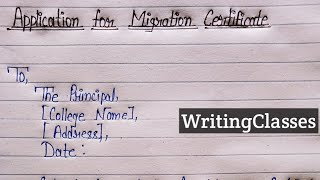 Application for Migration Certificate
To,
The Principal,
[College Name],
[Address],
Date:
WritingClasses